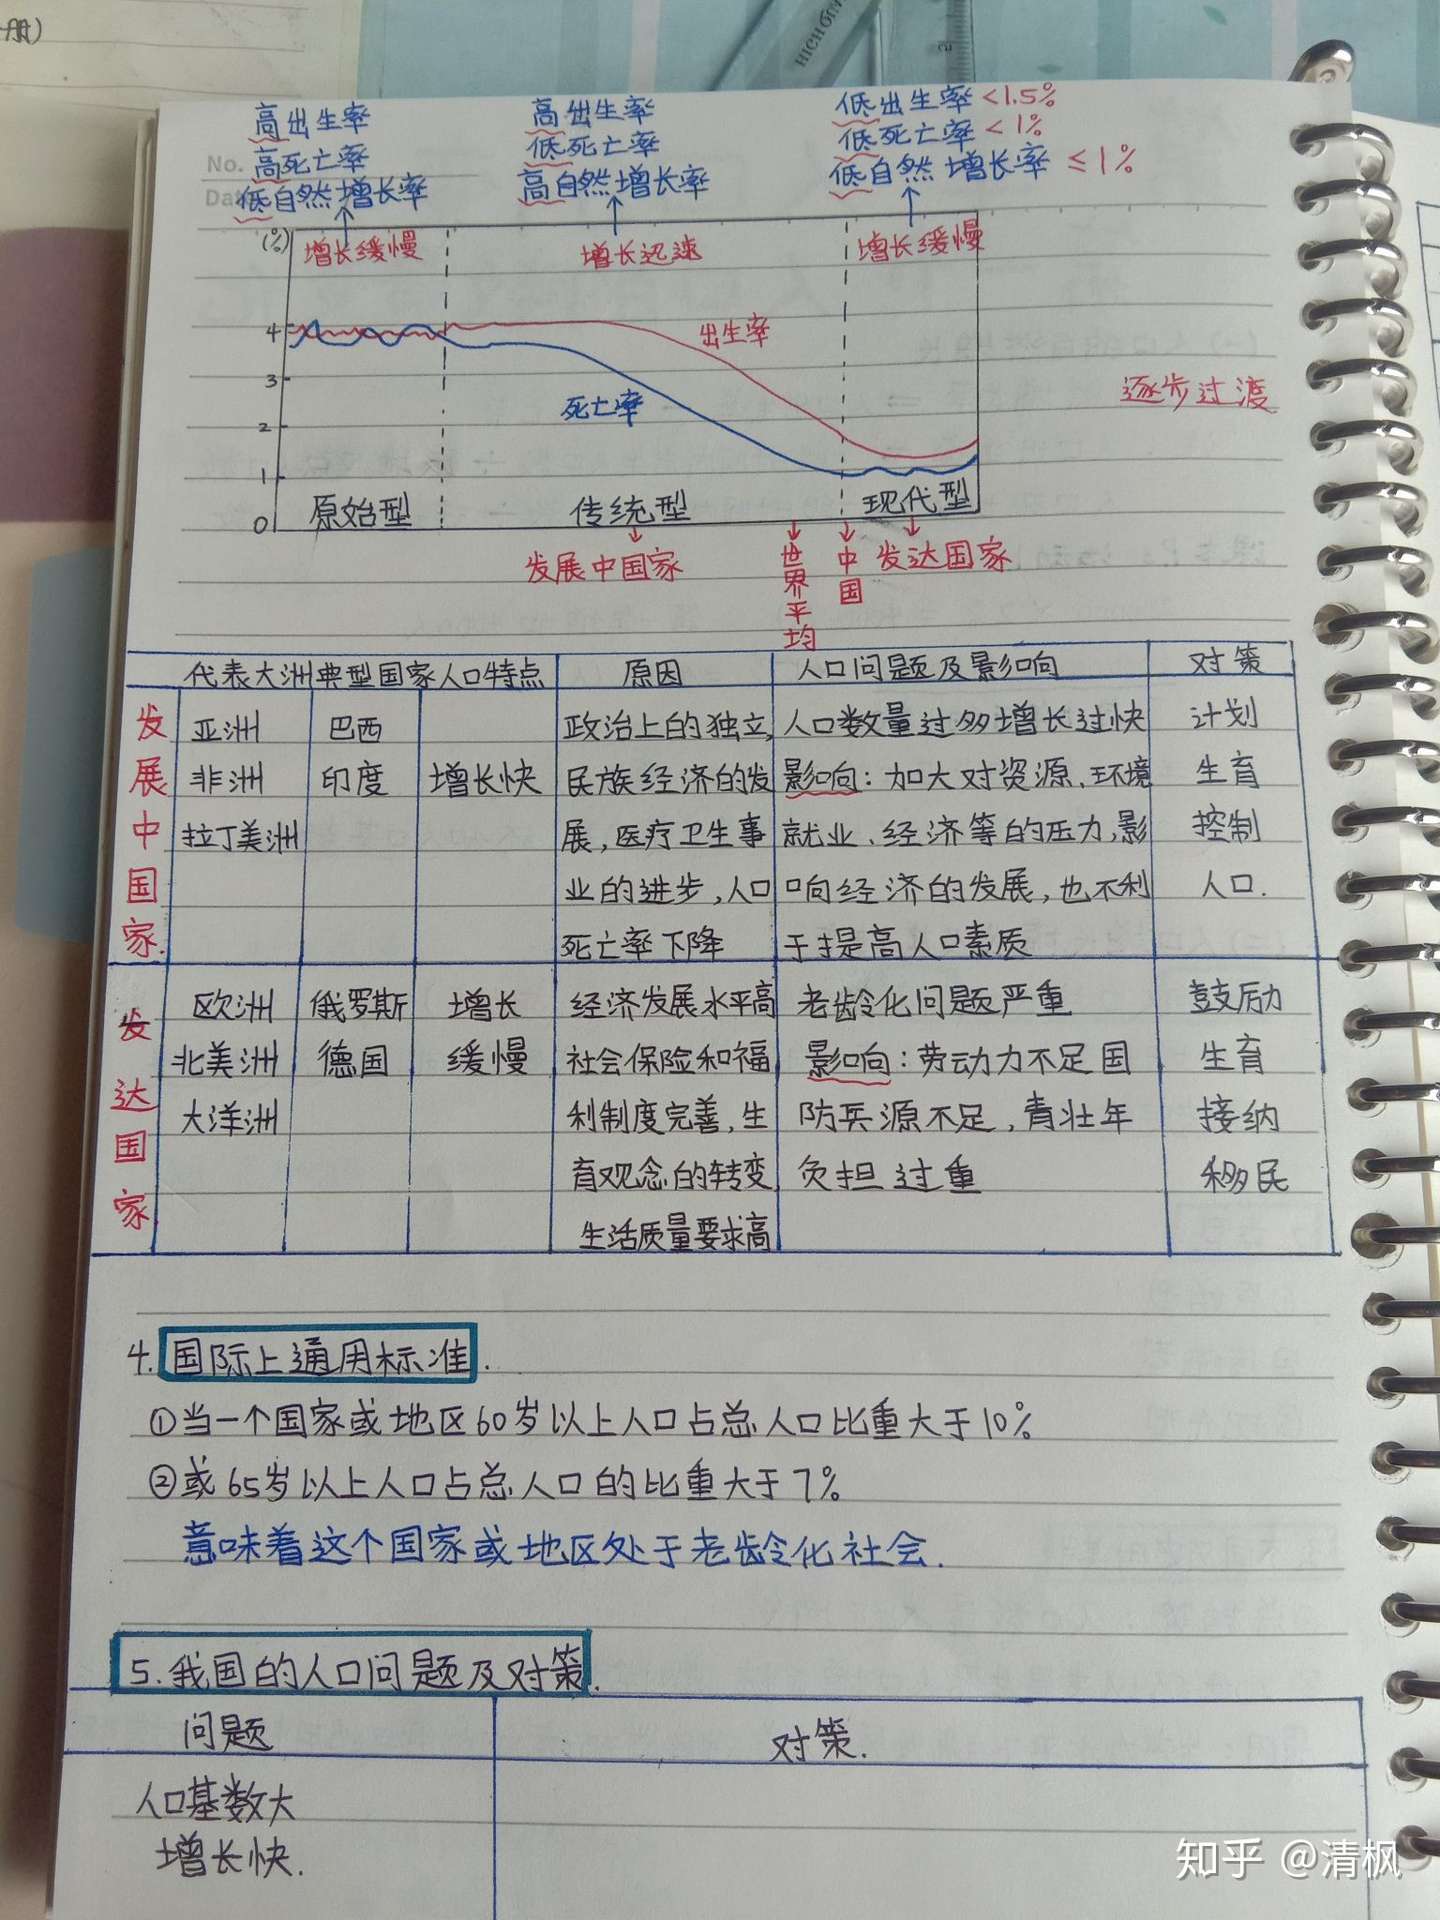 册)
HIGH
No.
高出生率 高出生率 低出生率<1.5%
高死亡率 低死亡率 低死亡率<1%
低自然增长率 高自然增长率 低自然增长率≤1%
(%) 增长缓慢 增长迅速 增长缓慢
4 出生率
3 死亡率 逐步过渡
2
1
0 原始型 传统型 现代型
发展中国家 世界平均 中国 发达国家
代表大洲 典型国家 人口特点 原因 人口问题及影响 对策
发展中国家.
亚洲 巴西 政治上的独立, 人口数量过多增长过快 计划
非洲 印度 增长快 民族经济的发 影响:加大对资源、环境 生育
拉丁美洲 展,医疗卫生事 就业、经济等的压力,影 控制
业的进步,人口 响经济的发展,也不利 人口.
死亡率下降 于提高人口素质
发达国家
欧洲 俄罗斯 增长 经济发展水平高 老龄化问题严重 鼓励
北美洲 德国 缓慢 社会保险和福 影响:劳动力不足国 生育
大洋洲 利制度完善,生 防兵源不足,青壮年 接纳
育观念的转变 负担过重 移民
生活质量要求高
4.国际上通用标准.
①当一个国家或地区60岁以上人口占总人口比重大于10%
②或65岁以上人口占总人口的比重大于7%
意味着这个国家或地区处于老龄化社会.
5.我国的人口问题及对策.
问题 对策.
人口基数大
增长快.
知乎 @清枫